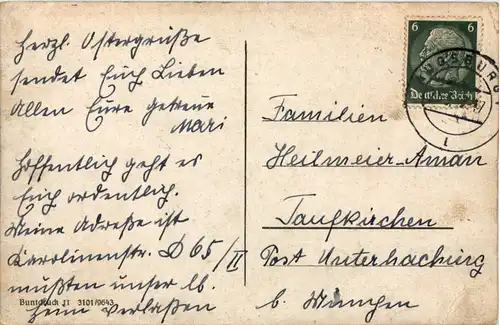 Herzl. Ostergrüße
sendet Euch Lieben
Allen Eure getreue
Mari
Hoffentlich geht es
Euch ordentlich.
Meine Adreße ist
Karolinenstr. D 65/II
mußten unser lb.
Heim verlaßen
Buntdruck 3101/0643
6 6
Deutsches Reich
AUGSBURG
1
Familien
Heilmeier-Aman
Taufkirchen
Post Unterhaching
b. München